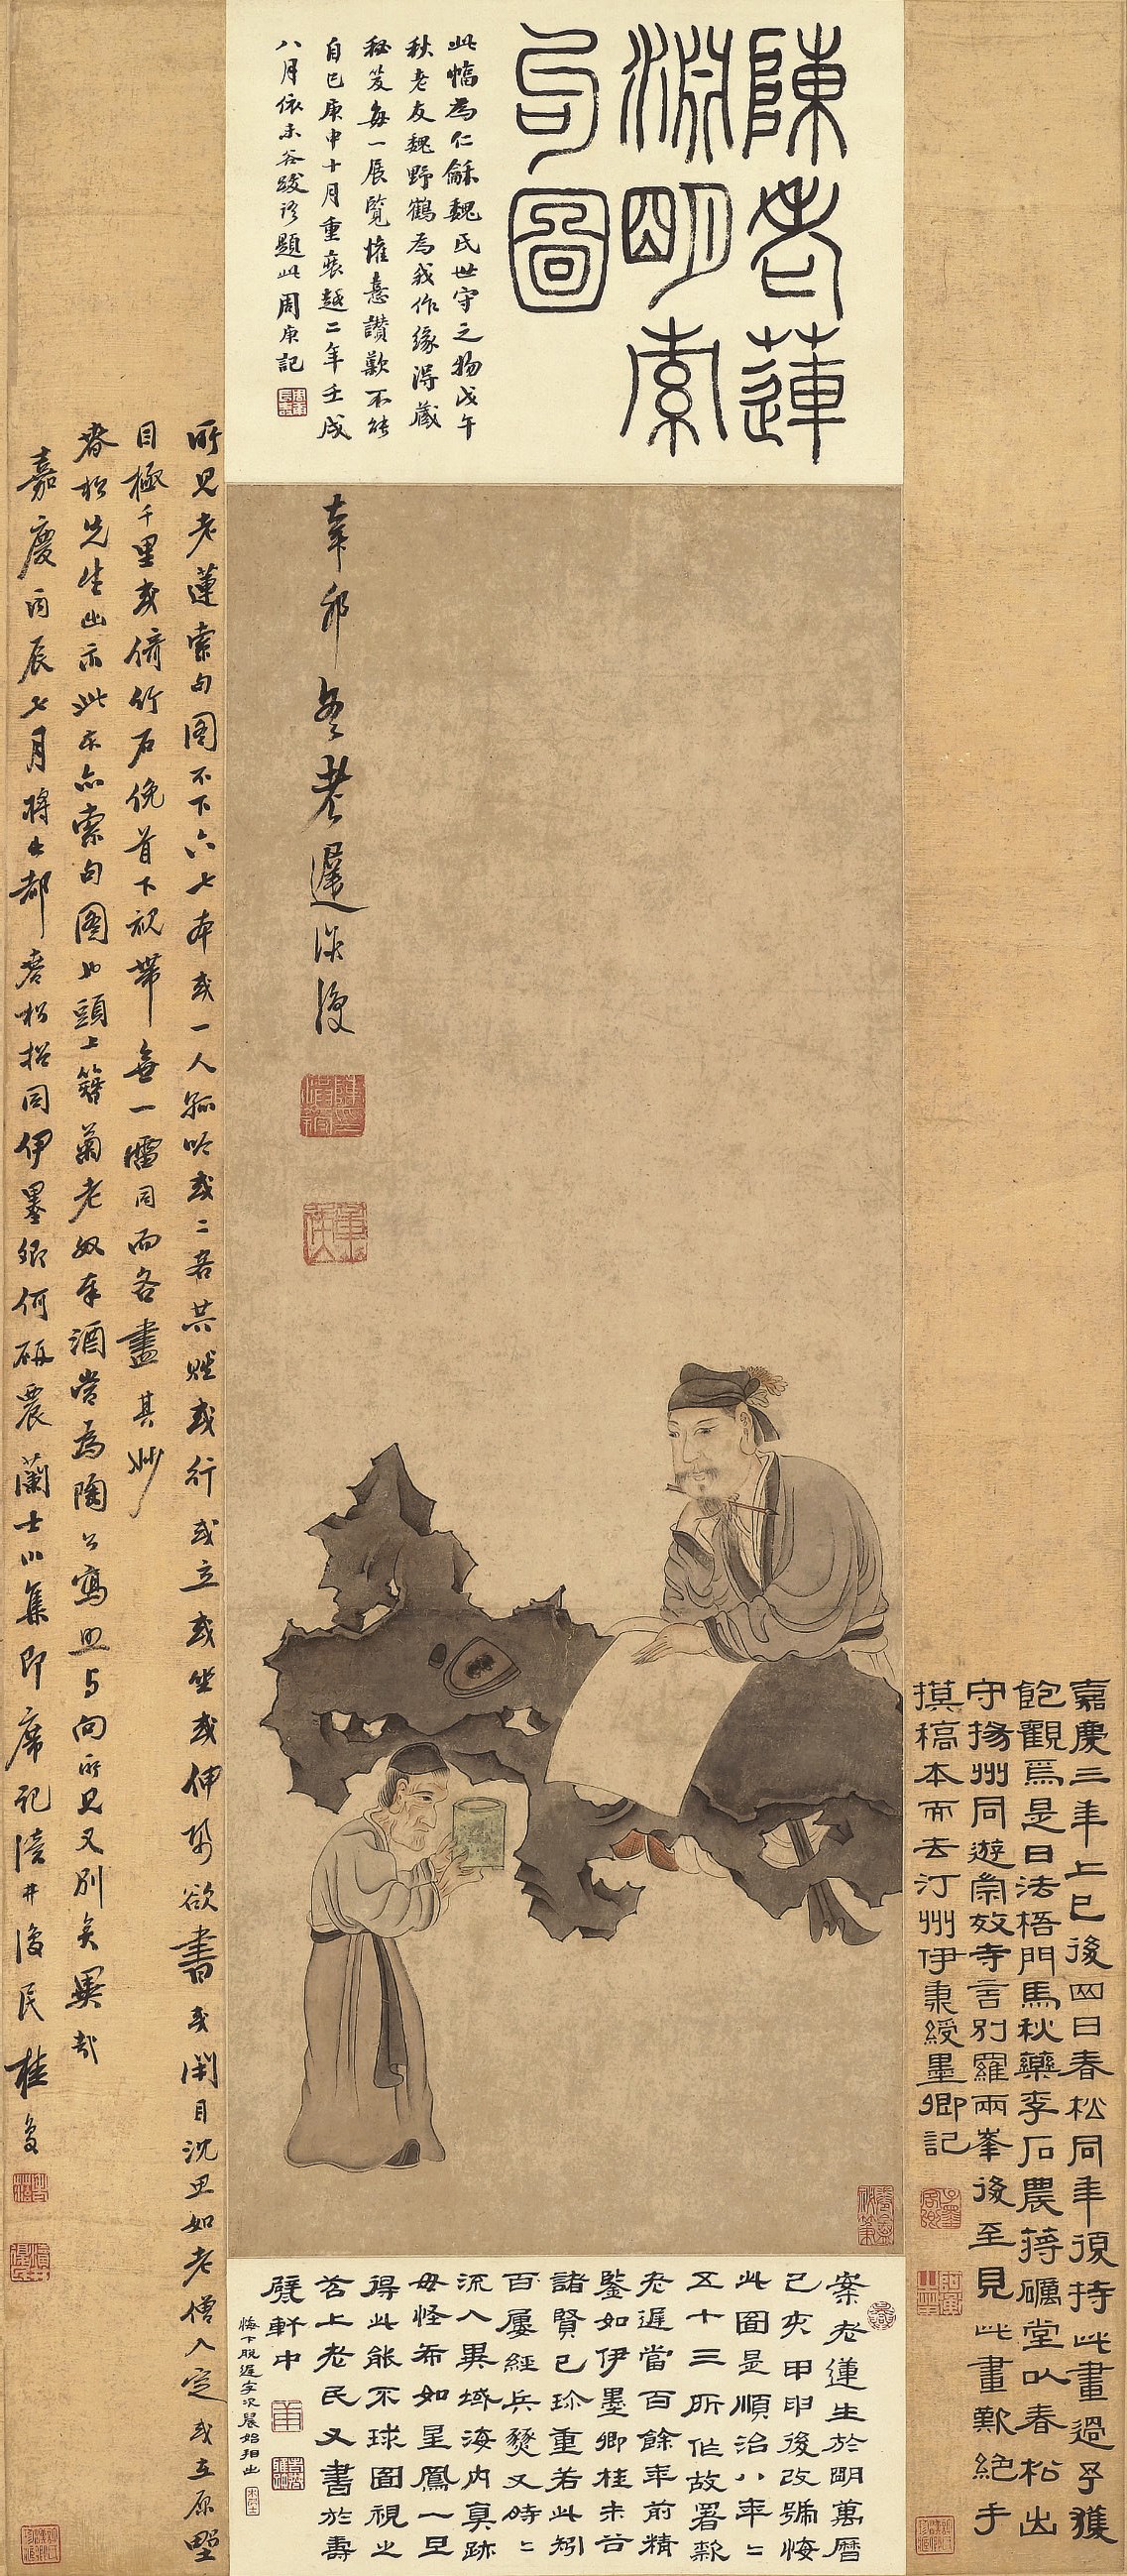 陳老蓮
淵明索
句圖
此幅為仁龢魏氏世守之物戊午
秋老友魏野鶴為我作緣得藏
秘笈每一展覽懽憙讚歎不能
自已庚申十月重裝越二年壬戌
八月依未谷跋語題此周庚記
辛卯冬老遲洪綬
嘉慶三年上巳後四日春松同年復持此畫過予獲
飽觀焉是日法梧門馬秋藥李石農蔣礪堂以春松出
守揚州同遊崇效寺言別羅兩峯後至見此畫歎絕手
摸稿本而去汀州伊秉綬墨卿記
所見老蓮索句圖不下六七本或一人孤吟或二客共賦或行或立或坐或伸紙欲書或閉目沈思如老僧入定或立原野
目極千里或倚竹石俛首下視帶無一雷同而各盡其妙
春松先生出示此本亦索句圖也頭上簪菊老奴奉酒當為陶公寫照與向所見又別矣異哉
嘉慶丙辰七月將出都春松招同伊墨卿何研農蘭士小集即席記瀆井復民桂馥
案老蓮生於明萬曆
己亥甲申後改號悔
此圖是順治八年二
五十三所作故署款
老遲當百餘年前精
鑒如伊墨卿桂未谷
諸賢已珍重若此矧
百屢經兵燹又時二
流入異域海內真跡
毋怪希如星鳳一旦
得此能不球圖視之
苕上老民又書於壽
甓軒中
悔下脫遲字次晨始指出